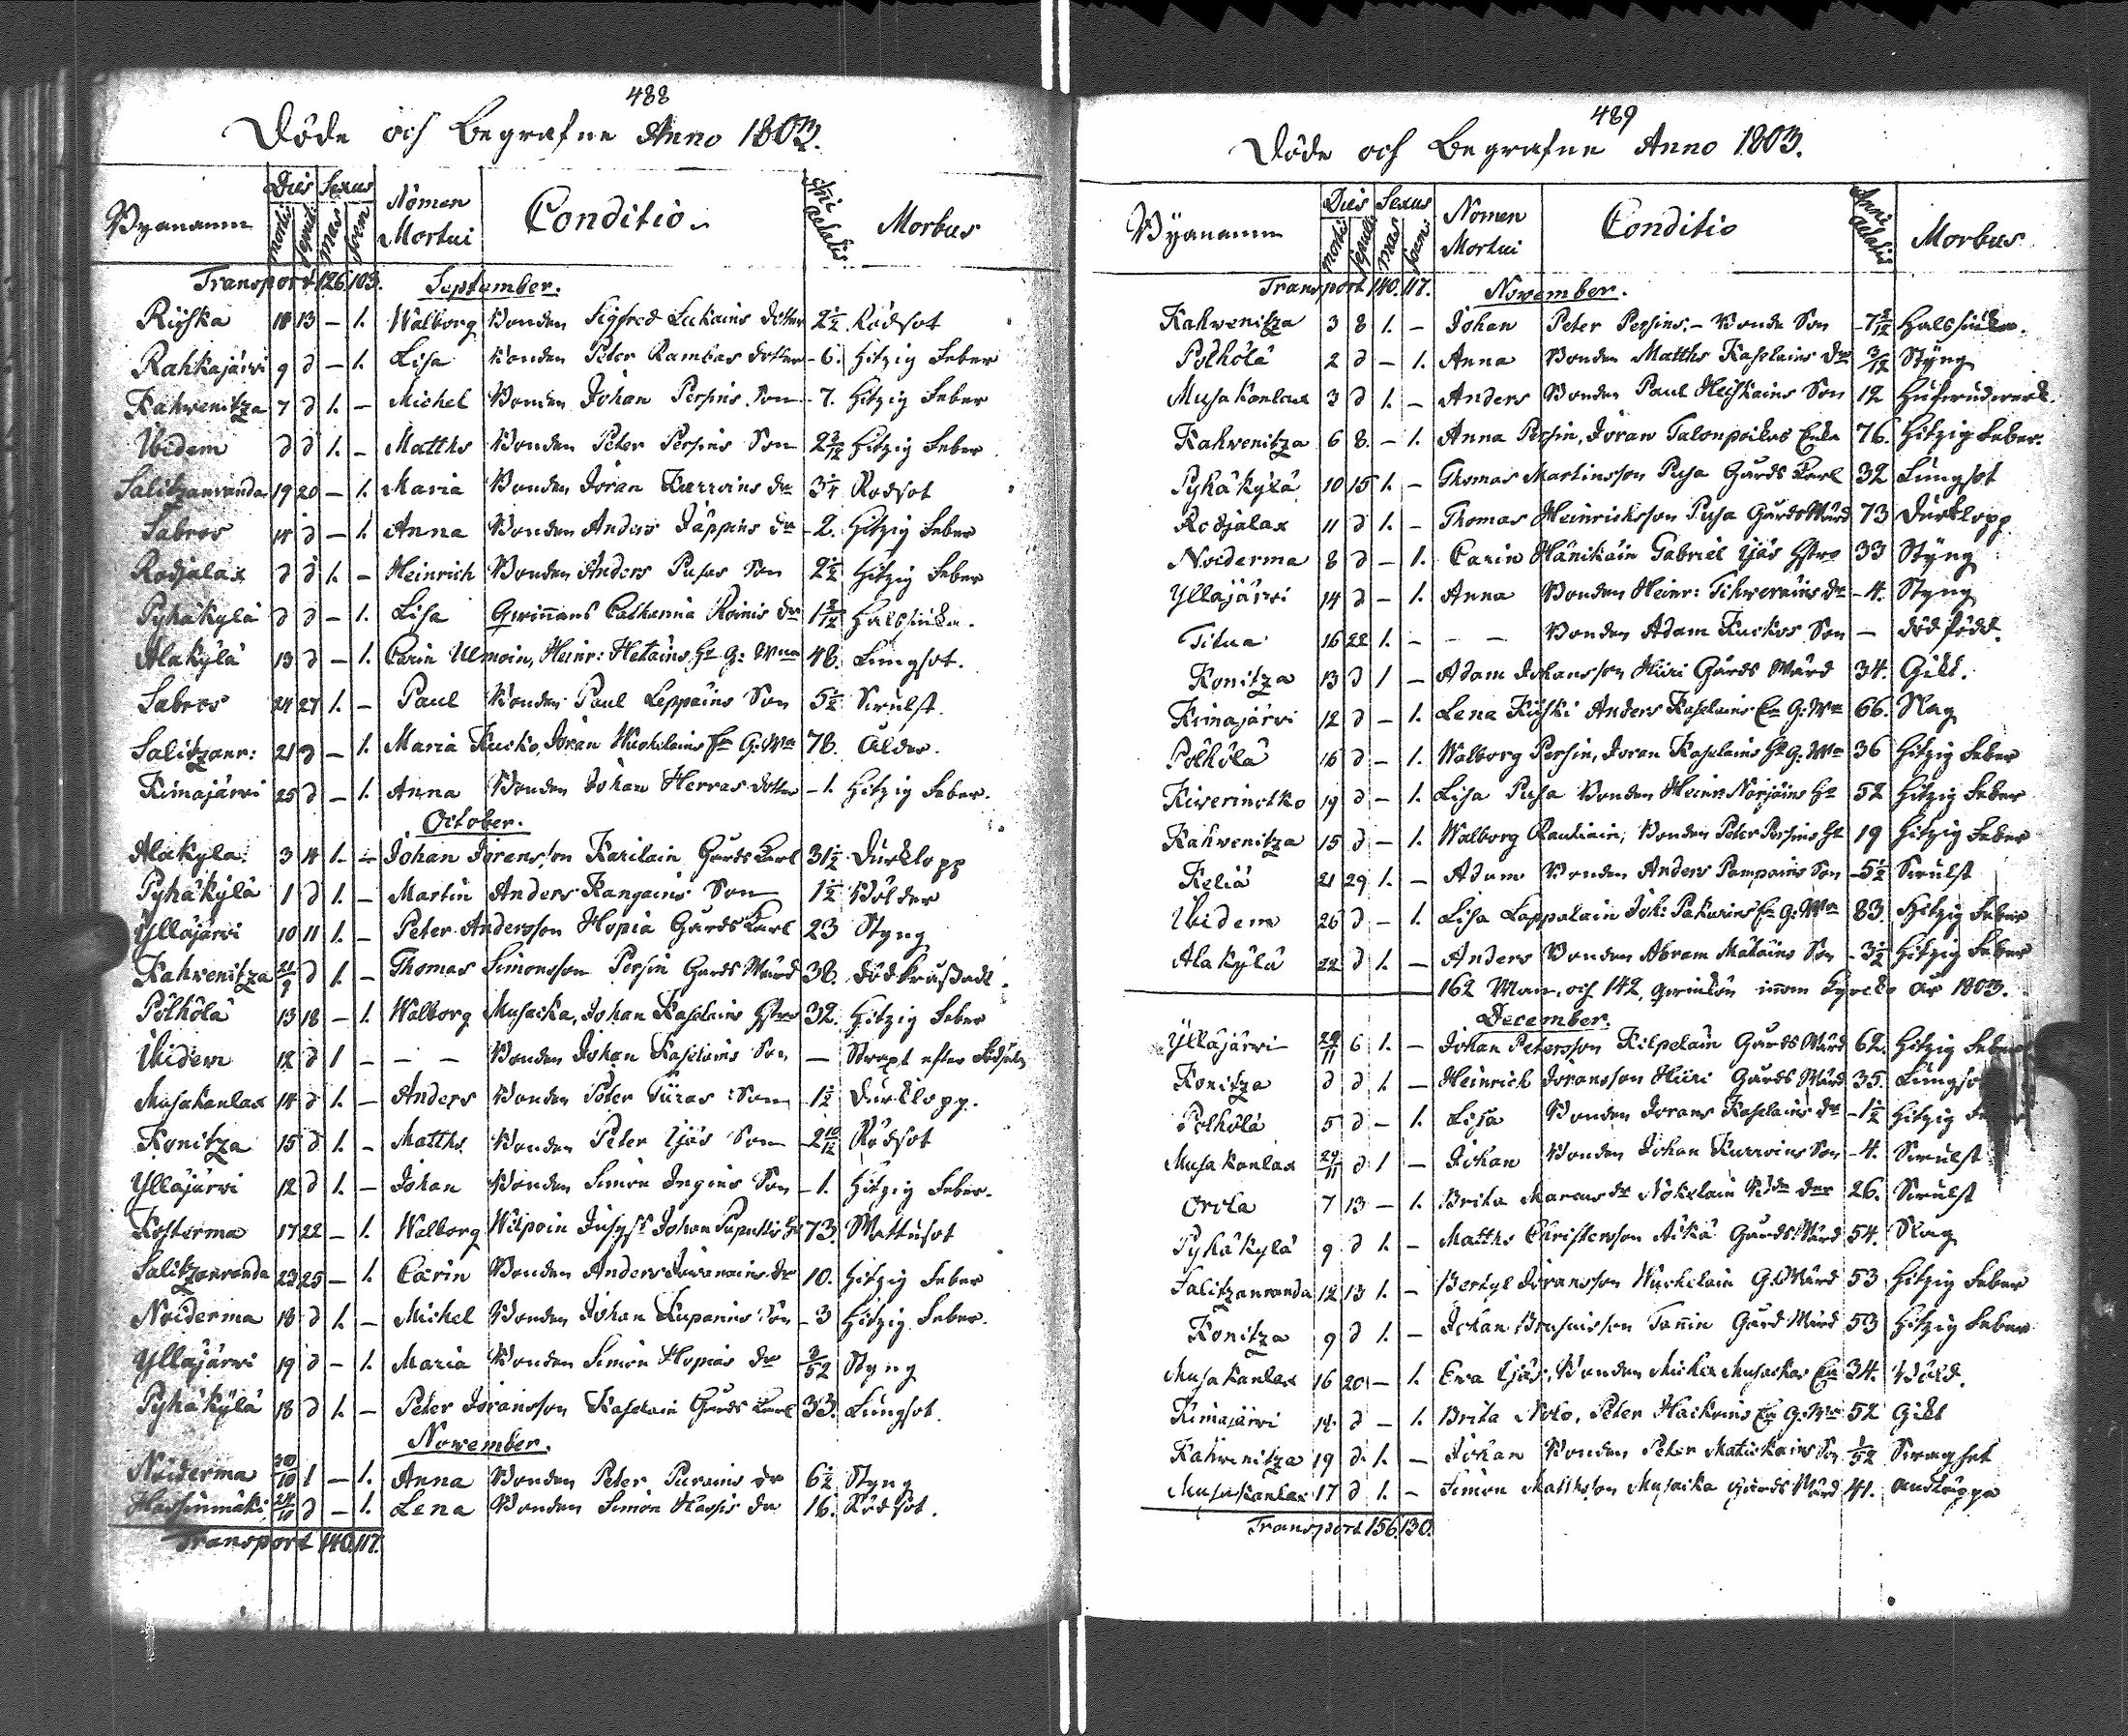 488
Döde och Begrafne Anno 1803.
Byanamn Dies Sexus Nomen Mortui Conditio Anni aetatis Morbus
mortis sepult. mas foem
Transport 126. 103. September.
Riiska 11 13 – 1. Walborg Bonden Sigfred Luckains dotter 2 1/2 Rödsot
Rahkajärvi 9 d – 1. Lisa Bonden Peter Rambas dotter – 6. Hitzig Feber
Kahwenitza 7 d 1. – Michel Bonden Johan Persins Son – 7. Hitzig Feber
Ibidem d d 1. – Matths Bonden Peter Persins Son 2 3/12 Hitzig Feber
Salitzanranda 19 20 – 1. Maria Bonden Jöran Kurvins dr 3 1/4 Rödsot
Sabros d – 1. Anna Bonden Anders Jäppins dr – 2. Hitzig Feber
Rodjalax d d 1. – Heinrich Bonden Anders Pusas Son 2 1/2 Hitzig Feber
Pyhäkylä d d – 1. Lisa Qwinnans Catharina Roinis dr Halssiuka.
Alakylä 13 d – 1. Carin Ulmoin, Heinr: Hetains Ha G: Wna 48. Lungsot.
Sabros 24 27 1. – Paul Bonden Paul Leppäins Son 5 1/2 Swulst.
Salitzanr: 21 d – 1. Maria Kucko, Jöran Huckelains Ea G: Wa 78. Ålder.
Kimajärvi 25 d – 1. Anna Bonden Johan Herras dotter – 1. Hitzig Feber.
October.
Alakyla 3 4 1. – Johan Jöransson Karilain Gårds Karl 31 1/2 Durklopp
Pyhäkylä 1 d 1. – Martin Anders Kangains Son 1 1/2 Bölder
Ylläjärvi 10 11 1. – Peter Andersson Hopia Gårds Karl 23 Styng
Kahvenitza 21/9 d 1. – Thomas Simonsson Persin Gårds Wärd 38. dödkrustadt.
Pölhölä 13 18 – 1. Walborg Musacka, Johan Kaselains Hstro 32. Hitzig Feber
Ibidem 12 d 1 – – – Bonden Johan Kaselains Son — Straxt efter födseln
Musakanlax 14 d 1. – Anders Bonden Peter Türas Son – 1 1/2 Durklopp.
Konitza 15 d 1. – Matths. Bonden Peter Ijäs Son – 2 10/12 Rödsot
Ylläjärvi 12 d 1. – Johan Bonden Simon Ingins Son – 1. Hitzig Feber.
Kosterma 17 22 – 1. Walborg Wilpoin Johan Paputtis Ha 73. Wattusot
Salitzanranda 23 25 – 1. Carin Bonden Anders dr 10. Hitzig Feber
Noiderma 18 d 1. – Michel Bonden Johan Kupanins Son – 3 Hitzig Feber.
Ylläjärvi 19 d – 1. Maria Bonden Simon Hopias dr 2/52 Styng
Pyhäkylä 18 d 1. – Peter Jöransson Kaselain Gårds Karl 33. Lungsot.
November.
Noiderma 30/10 1 – 1. Anna Bonden Peter Purains dr 6 1/2 Styng
Hassinmäki 24/10 d – 1. Lena Bonden Simon Hassis dr 16. Rödsot.
Transport 140. 117.
489
Döde och Begrafne Anno 1803.
Byanamn Dies Sexus Nomen Mortui Conditio Anni aetatis Morbus
mortis sepult mas foem
Transport 140. 117. November.
Kahwenitza 3 8 1. – Johan Peter Persins – Bonde Son Halssiuka.
Pölhölä 2 d – 1. Anna Bonden Matths Kaselains dr 3/12 Styng
Musakanlax 3 d 1. – Anders Bonden Paul Heiskains Son 12 Hufwudwerk.
Kahvenitza 6 8. – 1. Anna Persin, Jöran Talonpoikas Enka 76. Hitzig Feber.
Pyhäkylä 10 15 1. – Thomas Martinsson Pusa Gårds Karl 32 Lungsot
Rodjalax 11 d 1. – Thomas Heinricksson Pusa Gårds Wärd 73 Durklopp
Noiderma 8 d – 1. Carin Hänikäin Gabriel Ijäs Hstro 33 Styng
Ylläjärvi 14 d – 1. Anna Bonden Heinr: Tihverains dr – 4. Styng
Titua 16 22 1. – – – Bonden Adam Kuckos Son — död född.
Konitza 13 d 1 – Adam Johansson Hiiri Gårds Wärd 34. Gikt.
Kimajärvi 12 d – 1. Lena Kiiski Anders Kaselains Ea G: Wa 66. Slag
Pölhölä 16 d – 1. Walborg Persin, Jöran Kaselains Ha G: Wa 36 Hitzig Feber
Kiverinotko 19 d – 1. Lisa Pusa Bonden Heinr: Norjains Ha 52 Hitzig Feber
Kahvenitza 15 d – 1. Walborg Rautiain, Bonden Peter Persins Ha 19 Hitzig Feber
Keliä 21 29 1. – Adam Bonden Anders Pampains Son – 5 1/2 Swulst
Ibidem 26 d – 1. Lisa Lappalain Joh: Pakarins Ea G: Wa 83. Hitzig Feber
Alakylä 22 d 1. – Anders Bonden Abram Matains Son – 3 1/2 Hitzig Feber
162 Man, och 142, qwinkön innom Kyrcko år 1803.
December.
Ylläjärvi 28/11 6 1. – Johan Petersson Kilpelain Gårds Wärd 62. Hitzig Feber
Konitza d d 1. – Heinrich Joransson Hiiri Gårds Wärd 35. Lungsot
Pölhölä 5 d – 1. Lisa Bonden Jorans Kaselains dr – 1 1/2 Hitzig Feber
Musakanlax 29/11 d 1 – Johan Bonden Johan Kurvoins Son – 4. Swulst
Orola 7 13 – 1. Brita Marcus dr Nokelain 26. Swulst
Pyhäkylä 9 d 1. – Matths Christersson Äikä Gårds Wärd 54. Slag
Salitzanranda 12 13 1. – Bertyl Jöransson Huckelain G. Wärd 53 Hitzig Feber
Konitza 9 d 1. – Johan Brusinsson Tannin Gård Wärd 53 Hitzig Feber
Musakanlax 16 20 – 1. Eva Ijäs, Bonden Michel Musackas Ea 34. Böld.
Kimajärvi 14. d – 1. Brita Noto, Peter Hackrins Ea G: Wa 52 Gikt
Kahvenitza 19 d. 1. – Johan Bonden Peter Matickains Son 1/52
Musakanlax 17 d 1. – Simon Matthsson Musacka Gårds Wärd 41. andtäppa
Transport 156. 130.